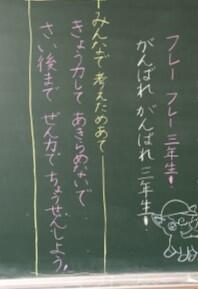 フレー フレー 三年生!
がんばれ がんばれ 三年生!
みんなで 考えためあて
きょう力して あきらめないで
さい後まで ぜん力で ちょうせんしよう。